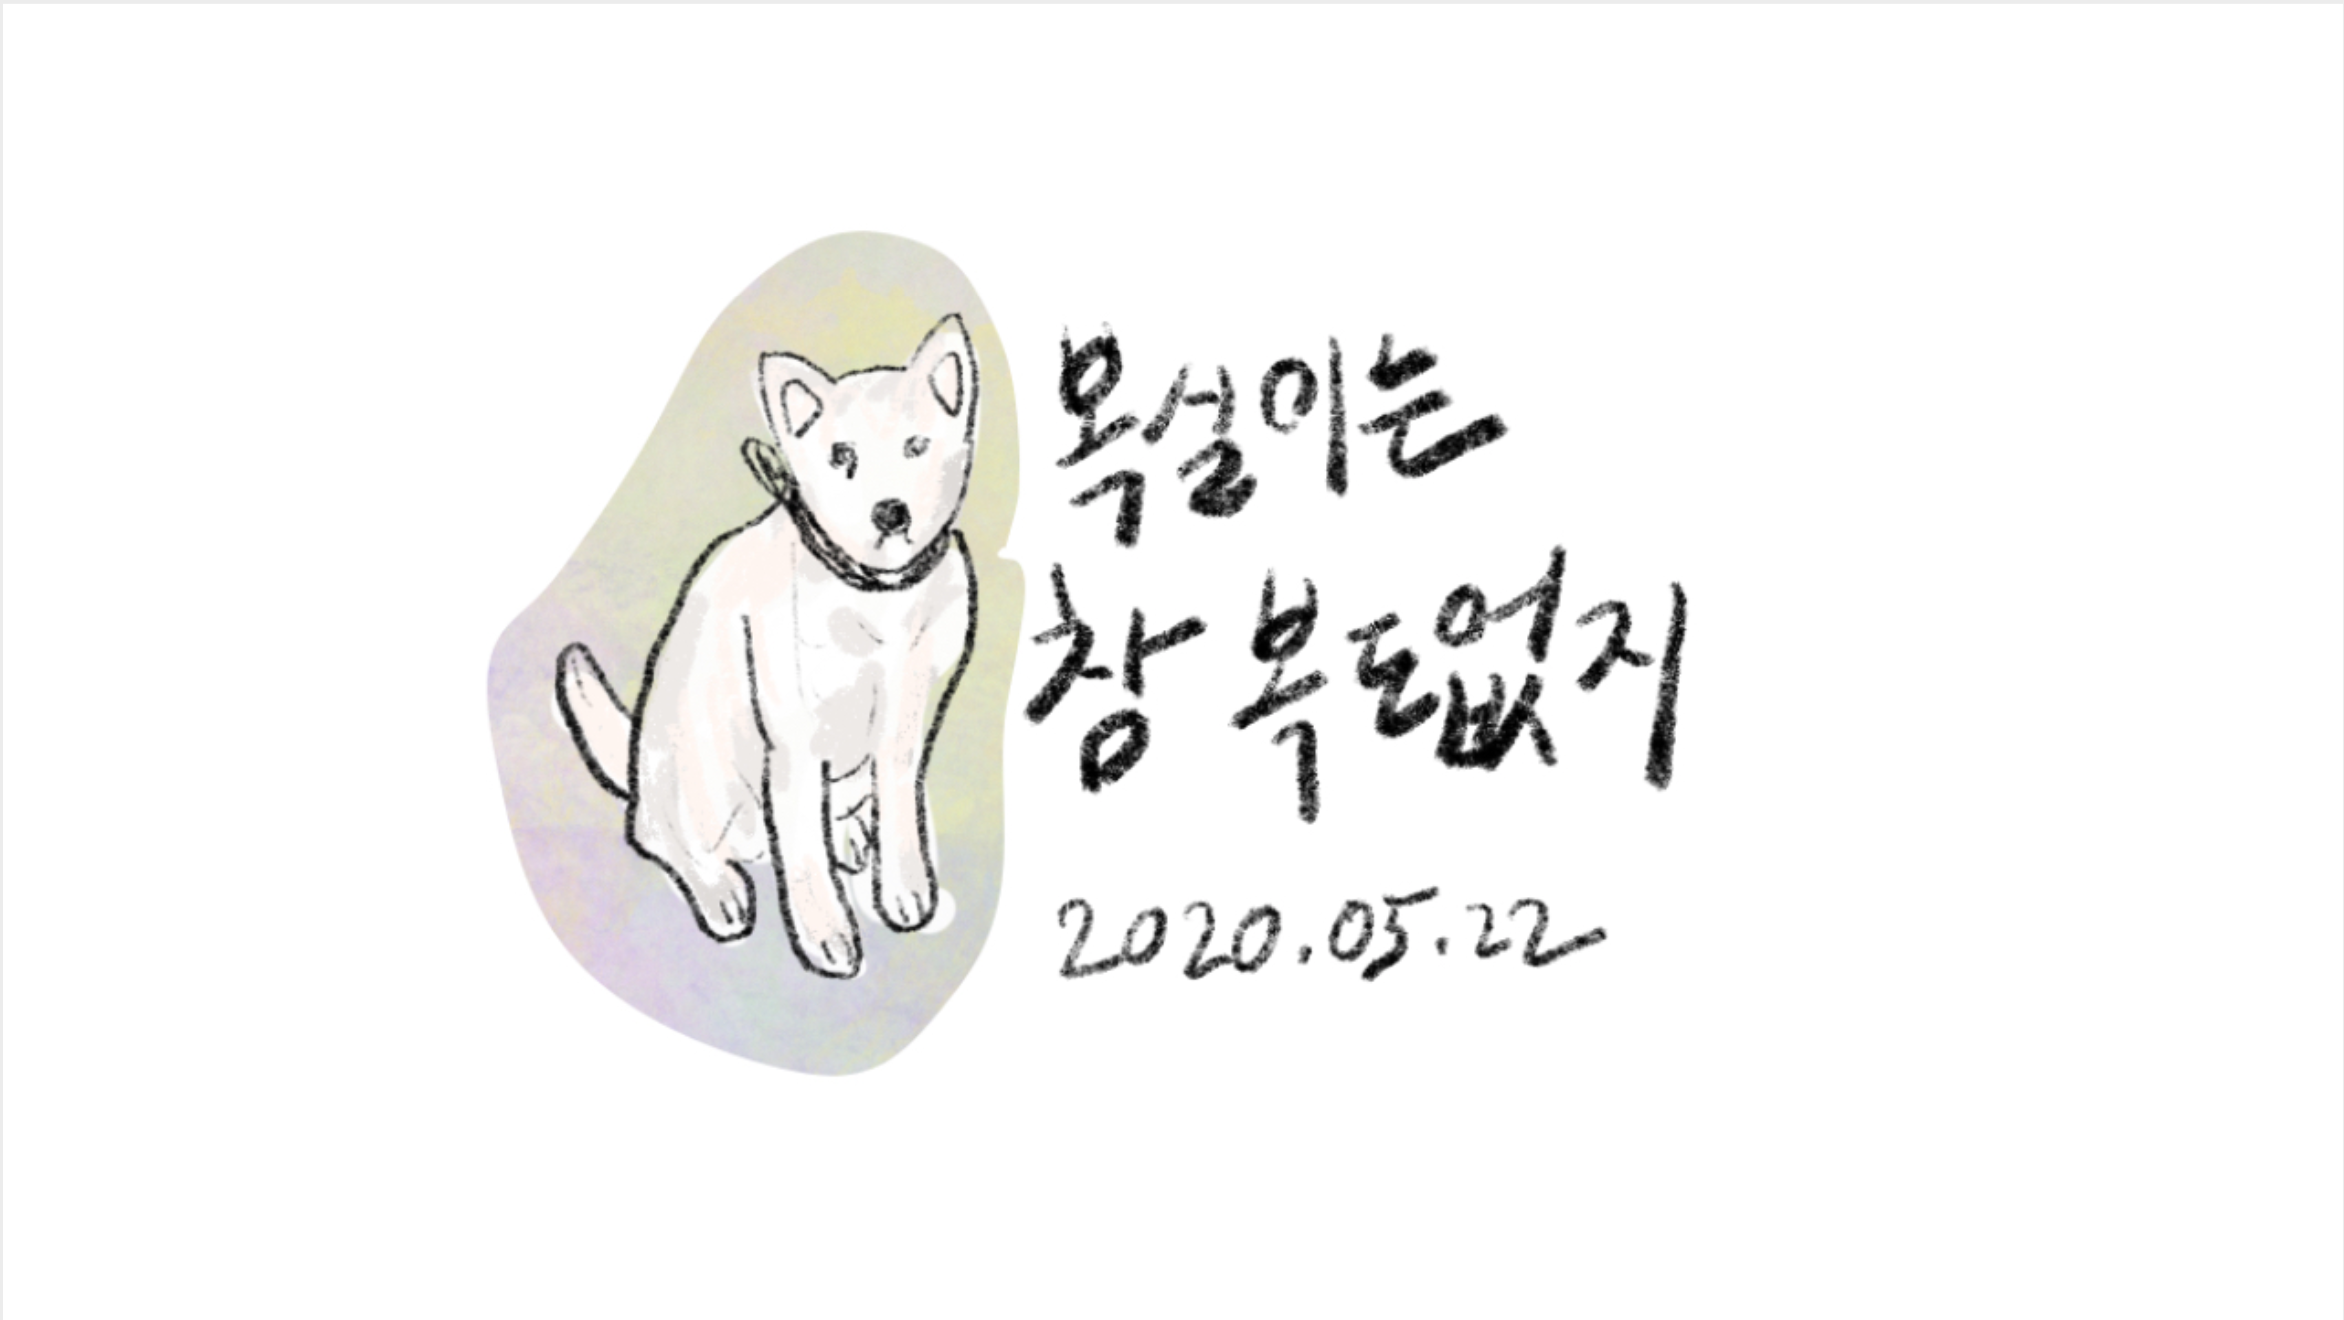 복설이는
참 복도없지
2020.05.22